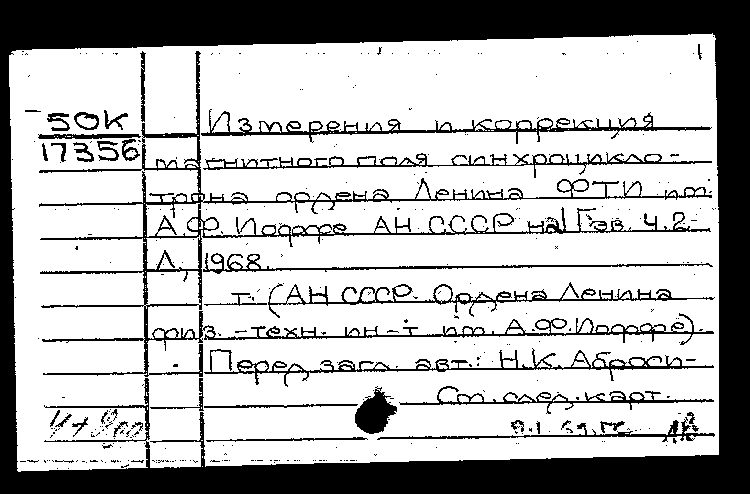 1
50К
17356
Измерения и коррекция
магнитного поля синхроцикло-
трона ордена Ленина ФТИ им.
А.Ф. Иоффе АН СССР на 1 Гэв. Ч.2-
Л., 1968.
т. (АН СССР. Ордена Ленина
физ.-техн. ин-т им. А.Ф.Иоффе).
Перед загл. авт.: Н.К. Аброси-
См. след. карт.